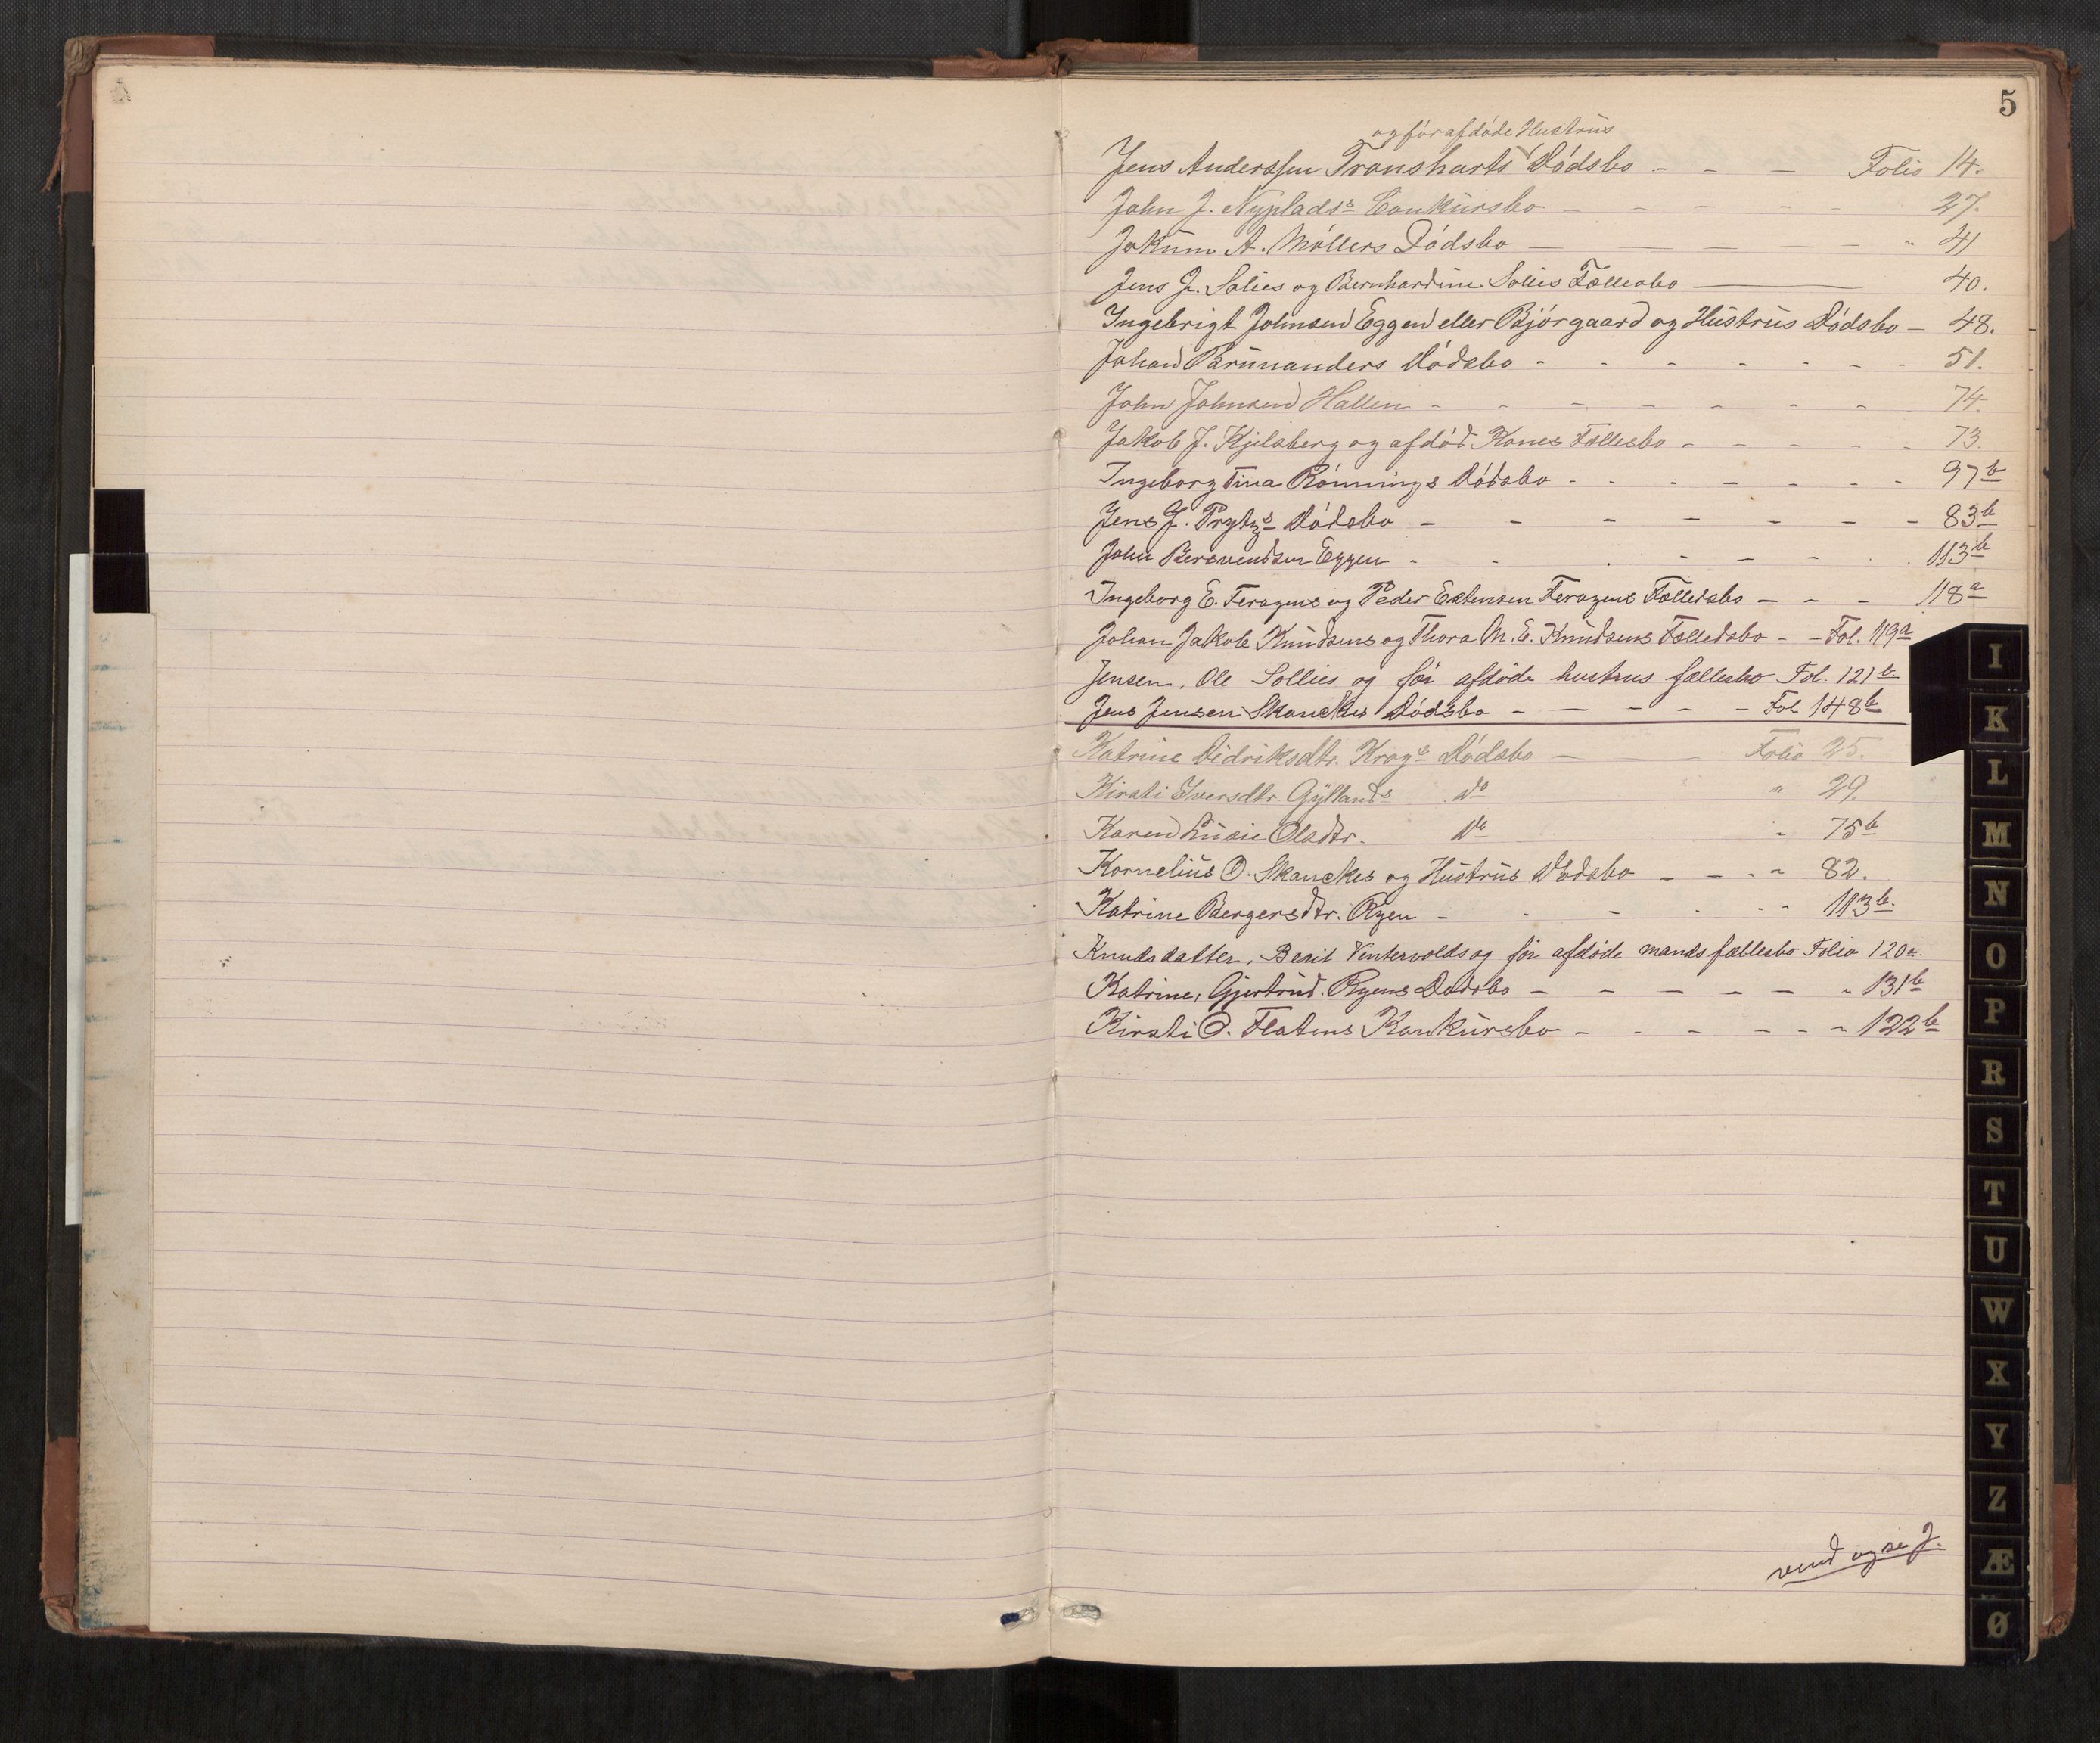 5
og førafdøde Hustrus
Jens Anderssen Transharts Dødsbo - - - Folio 14.
John J. Nyplads's Conkursbo - - - - - 27.
Jokum A. Møllers Dødsbo - - - - - " 41
Jens J. Solies og Bernhardine Solies Fællesbo - - 40.
Ingebrigt Johnsen Eggen eller Bjørgaard og Hustrus Dødsbo - 48.
Johan Brunanders Dødsbo - - - - - - 51.
John Johnsen Hallen - - - - - - - 74.
Jakob J. Kjelsberg og afdød Kones Fællesbo - - - - - 73.
Ingeborg Tina Rønnings Dødsbo - - - - - - - 97b
Jens J. Prytz's Dødsbo - - - - - - - 83b
John Bersvendsen Eggen - - - - - - . 113b
Ingeborg E. Feragens og Peder Estensen Feragens Fælledsbo - - - 118a
Johan Jakob Knudsens og Thora M. E. Knudsens Fælledsbo - - Fol. 119a
Jensen, Ole Sollies og før afdøde hustrus fællesbo Fol. 121b
Jens Jensen Skanckes Dødsbo - - - - - Fol 148b
Katrine Didriksdtr. Krog's Dødsbo - - - Folio 25.
Kirsti Iversdtr. Gyllands Do " 29.
Karen Lusie Olsdtr. Do " 75b
Kornelius O. Skanckes og Hustrus Dødsbo - - - " 82.
Katrine Bergersdtr. Ryen - - - - - " 113b.
Knudsdatter, Berit Vintervolds og før afdøde mands fællesbo Folio 120a.
Katrine, Gjertrud. Ryens Dødsbo - - - - - " 131b
Kirsti O. Flatens Konkursbo - - - - - " 122b
vend og se J.
I
K
L
M
N
O
P
R
S
T
U
W
X
Y
Z
Æ
Ø